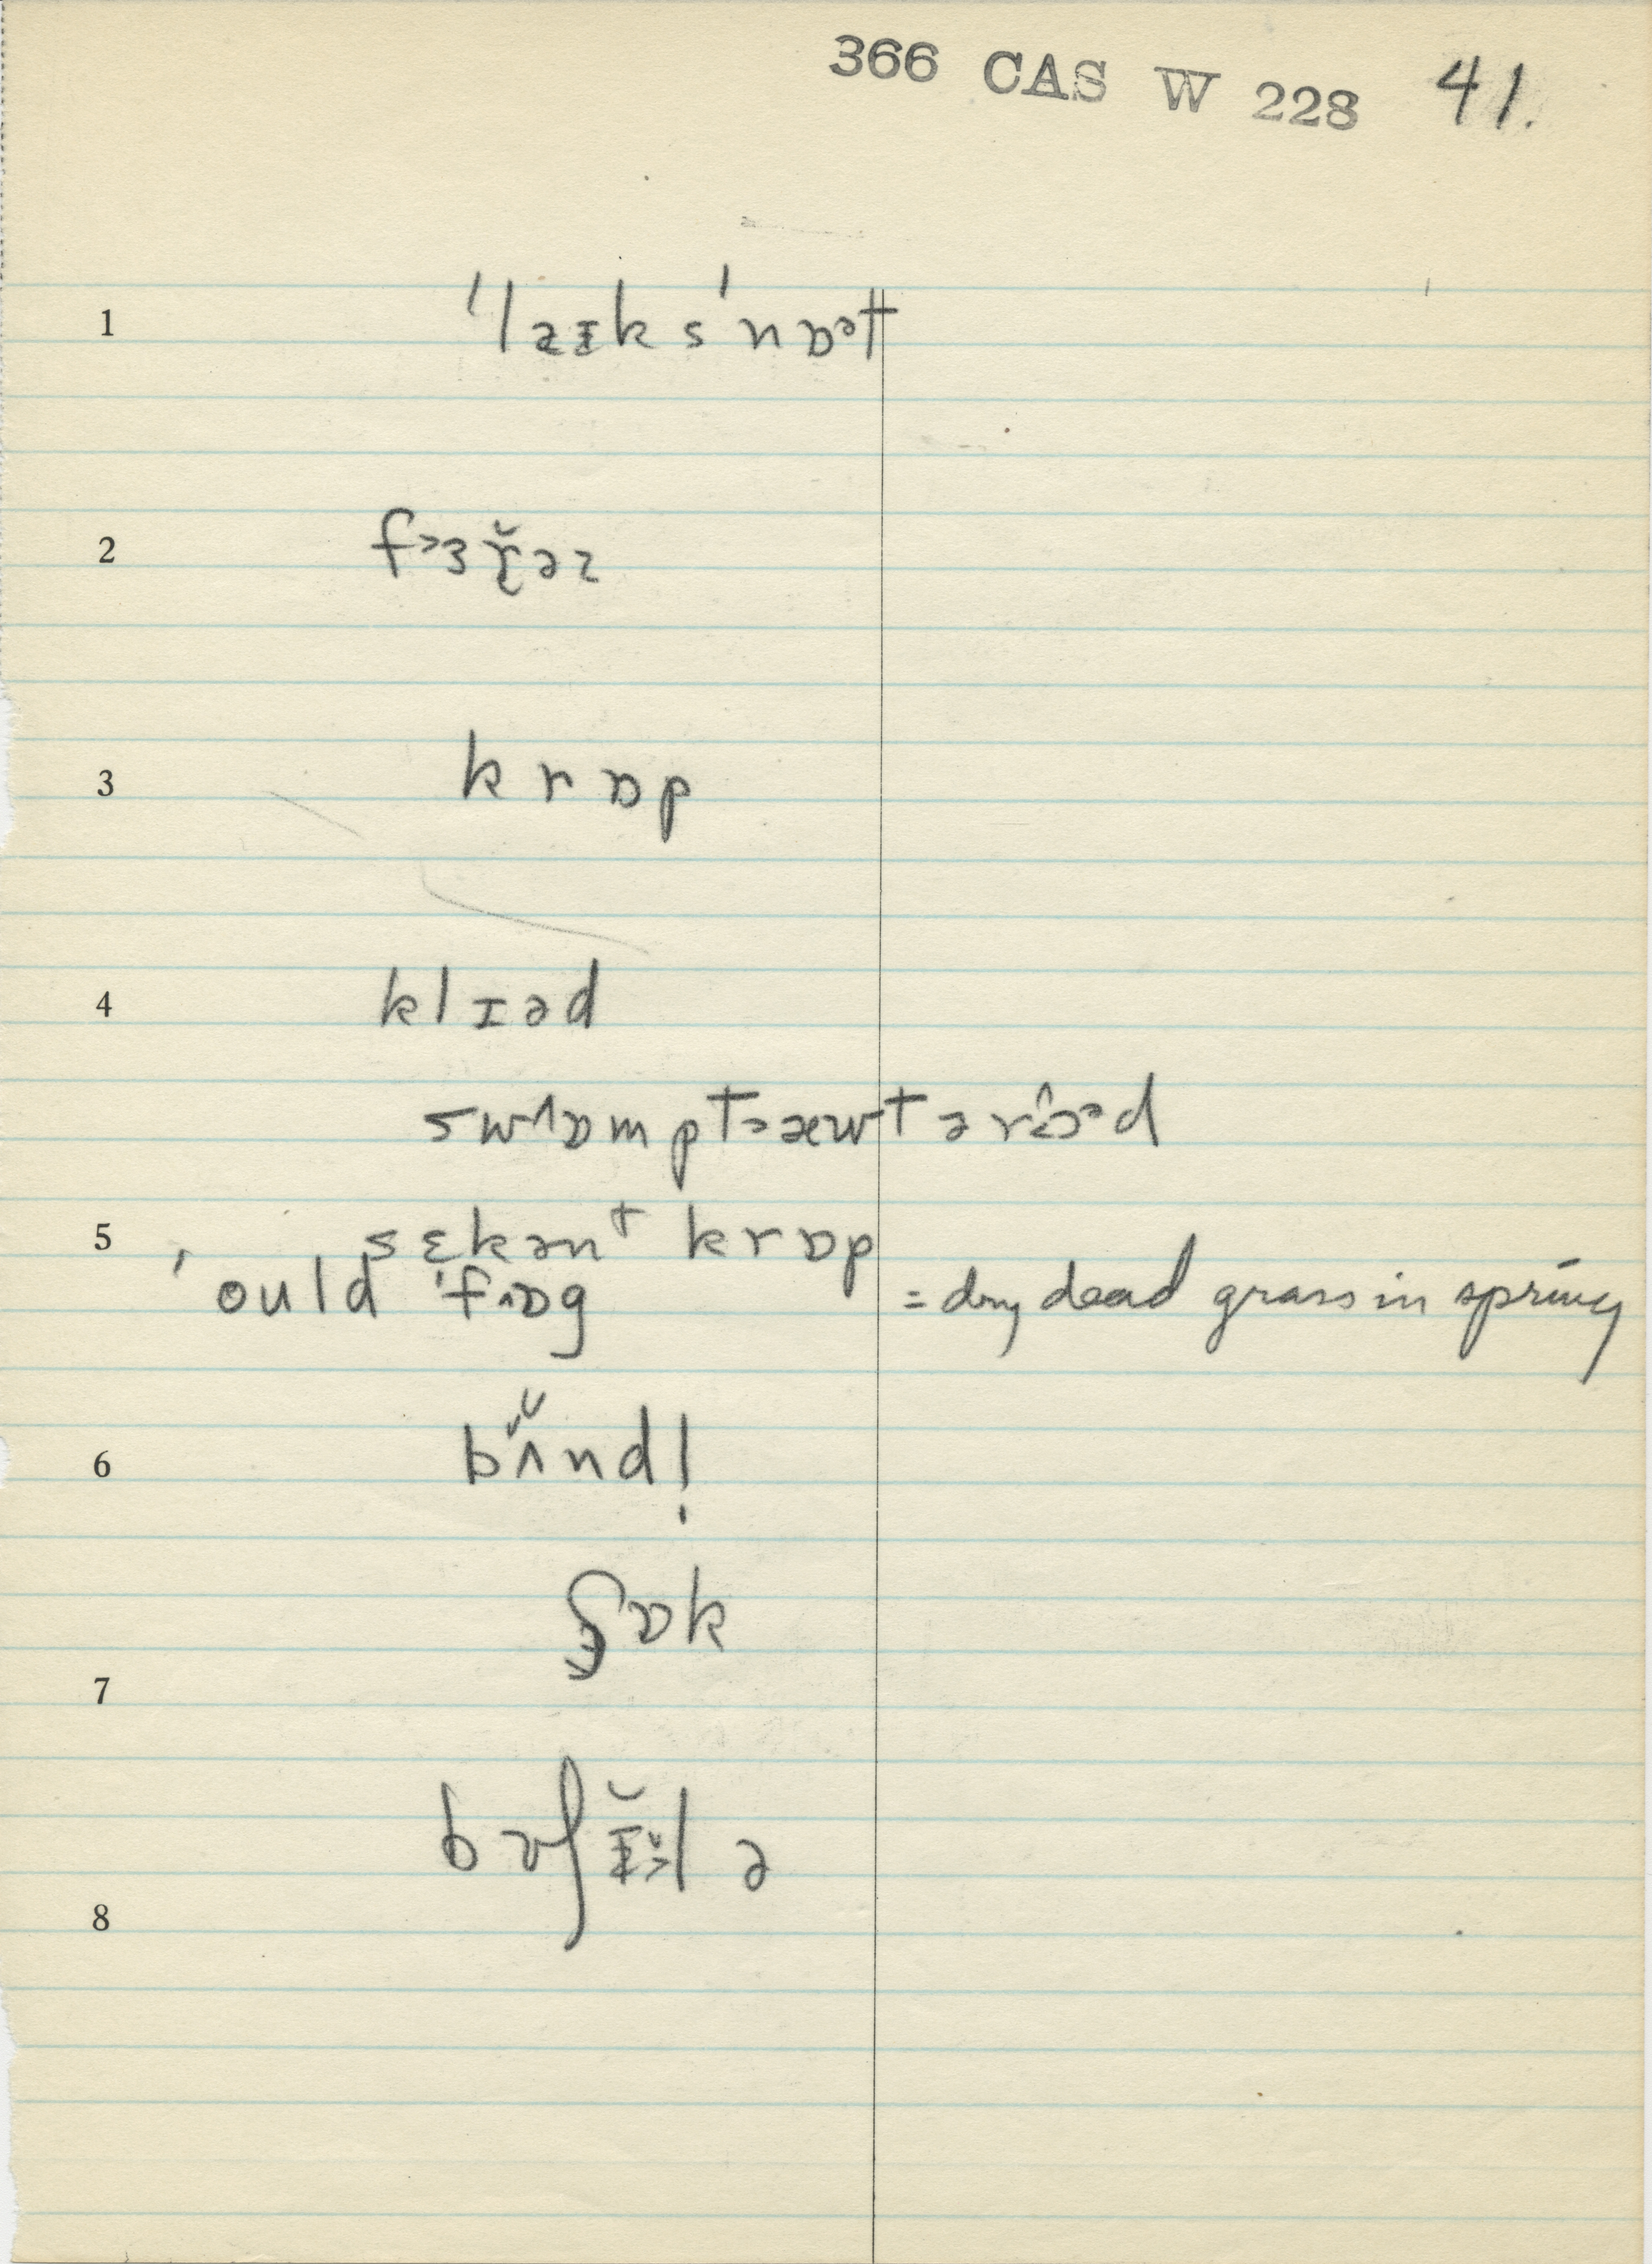 366 CAS W 228 41.
1 ˈlaɪks ˈnɒᵊt
2 fɜɤ̆əz
3 krɒp
4 klɪəd
swɒmpt æwt ə rɔᵊd
5 sɛkənᵗ krɒp
ˈould ˈfɒg = dry dead grass in spring
6 bʌ̆nd!
7 ʃɒk
8 bʊʃɪ̆lə